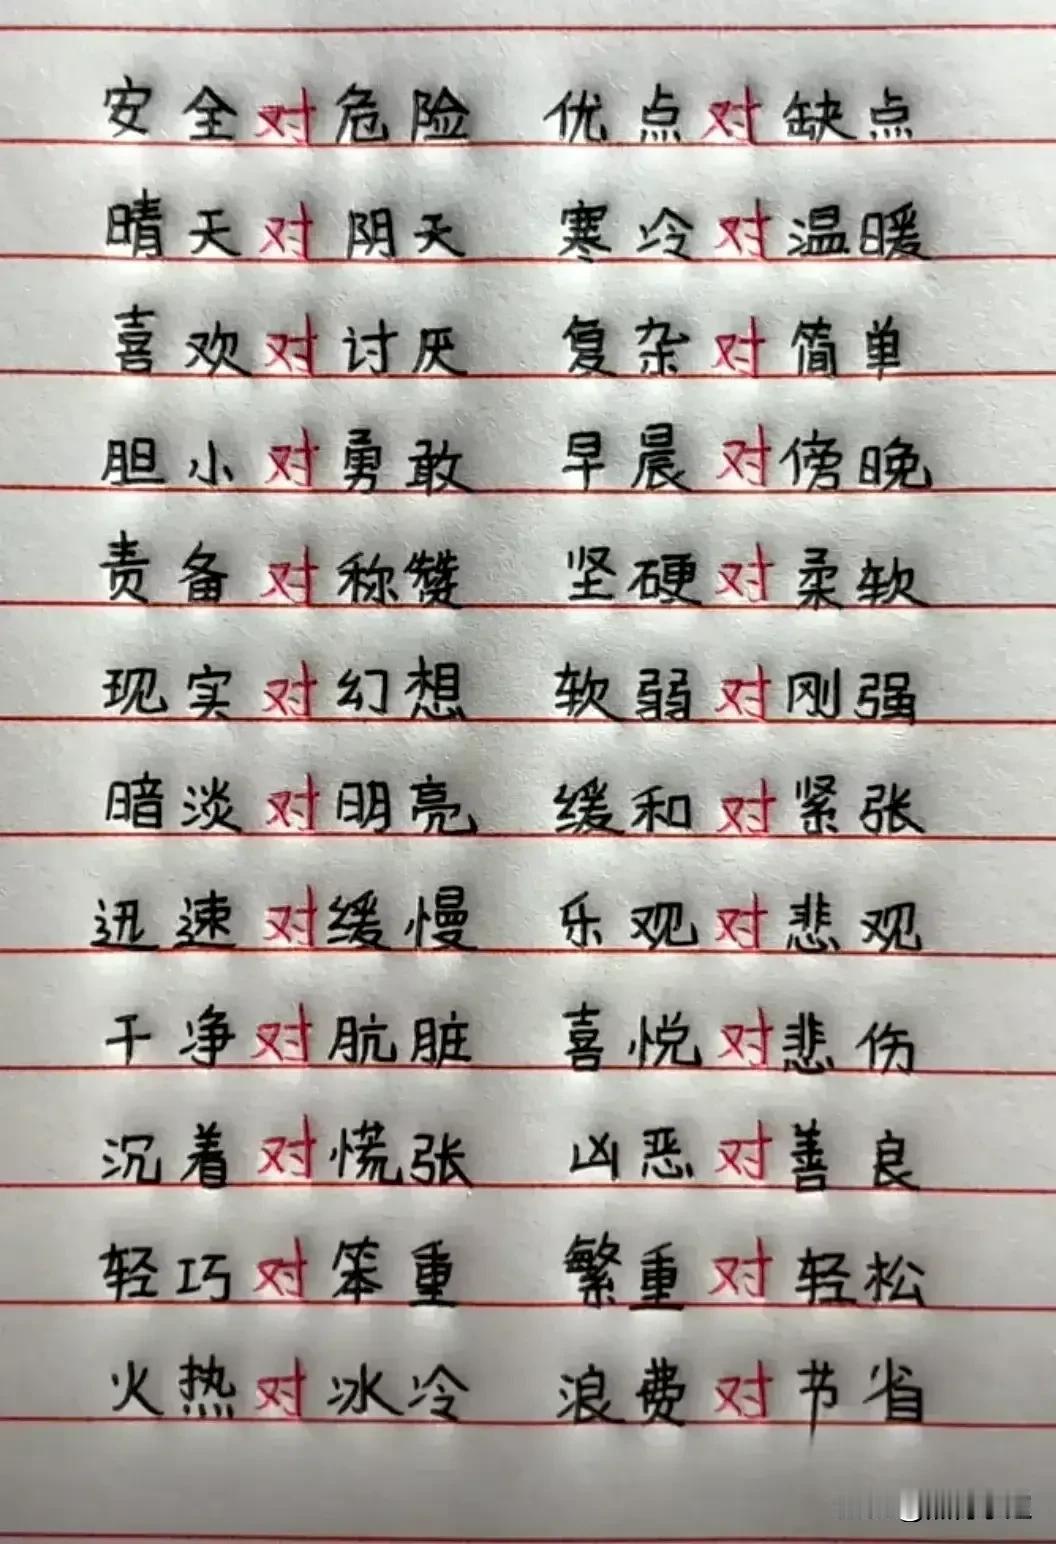 安全对危险 优点对缺点
晴天对阴天 寒冷对温暖
喜欢对讨厌 复杂对简单
胆小对勇敢 早晨对傍晚
责备对称赞 坚硬对柔软
现实对幻想 软弱对刚强
暗淡对明亮 缓和对紧张
迅速对缓慢 乐观对悲观
干净对肮脏 喜悦对悲伤
沉着对慌张 凶恶对善良
轻巧对笨重 繁重对轻松
火热对冰冷 浪费对节省